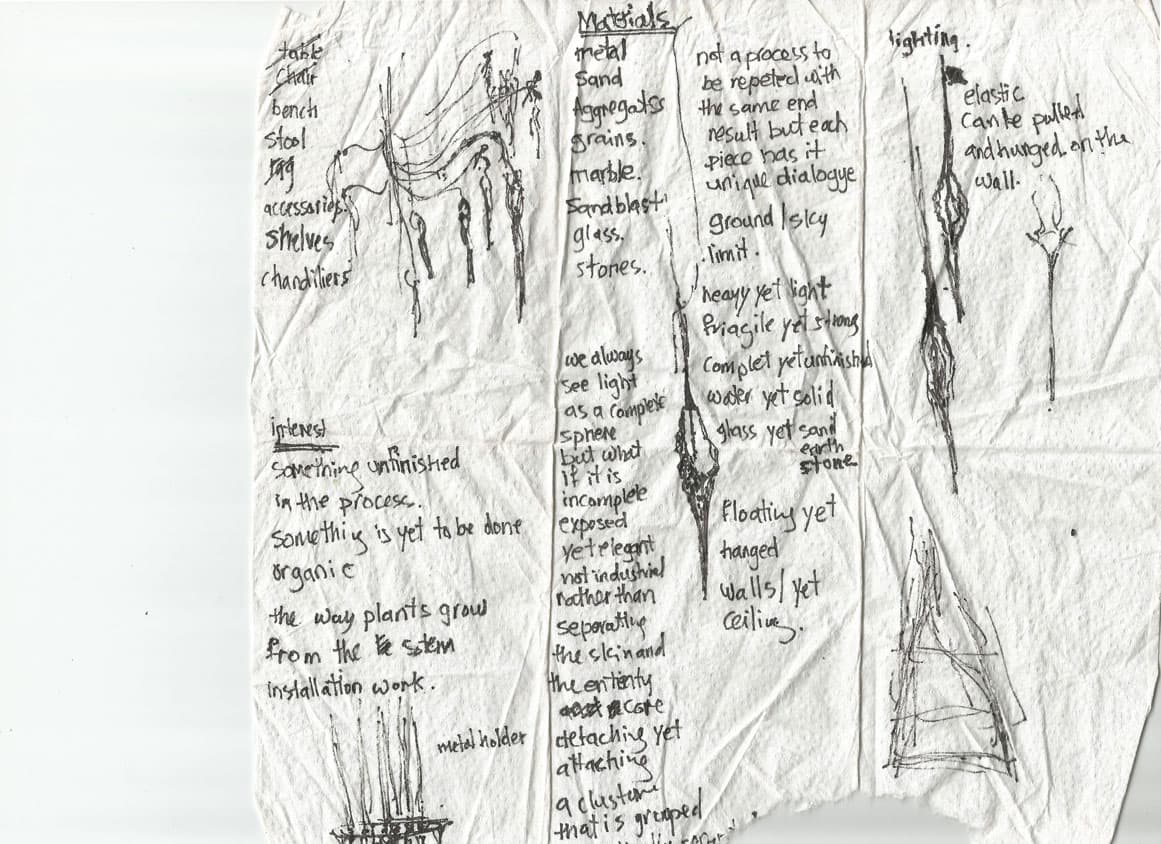 table
chair
bench
stool
rug
accessories.
shelves
chandiliers
interest
something unfinished
in the process.
something is yet to be done
organic
the way plants grow
from the stem
installation work.
metal holder
Materials
metal
sand
Aggregates
grains.
marble.
Sandblast
glass.
stones.
we always
see light
as a complete
sphere
but what
if it is
incomplete
exposed
yet elegant
not industrial
rather than
separating
the skin and
the entienty
core
detaching yet
attaching
a cluster
that is grouped
not a process to
be repeted with
the same end
result but each
piece has it
unique dialogye
ground/sky
limit.
heavy yet light
friagile yet strong
complet yet unfinished
water yet solid
glass yet sand
earth
stone
Floating yet
hanged
walls/yet
ceiling.
lighting.
elastic
can be pulled
and hunged on the
wall.